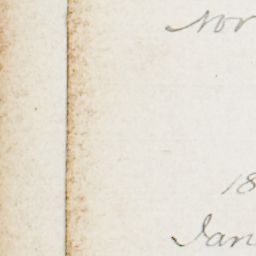 Nor
18
Jan